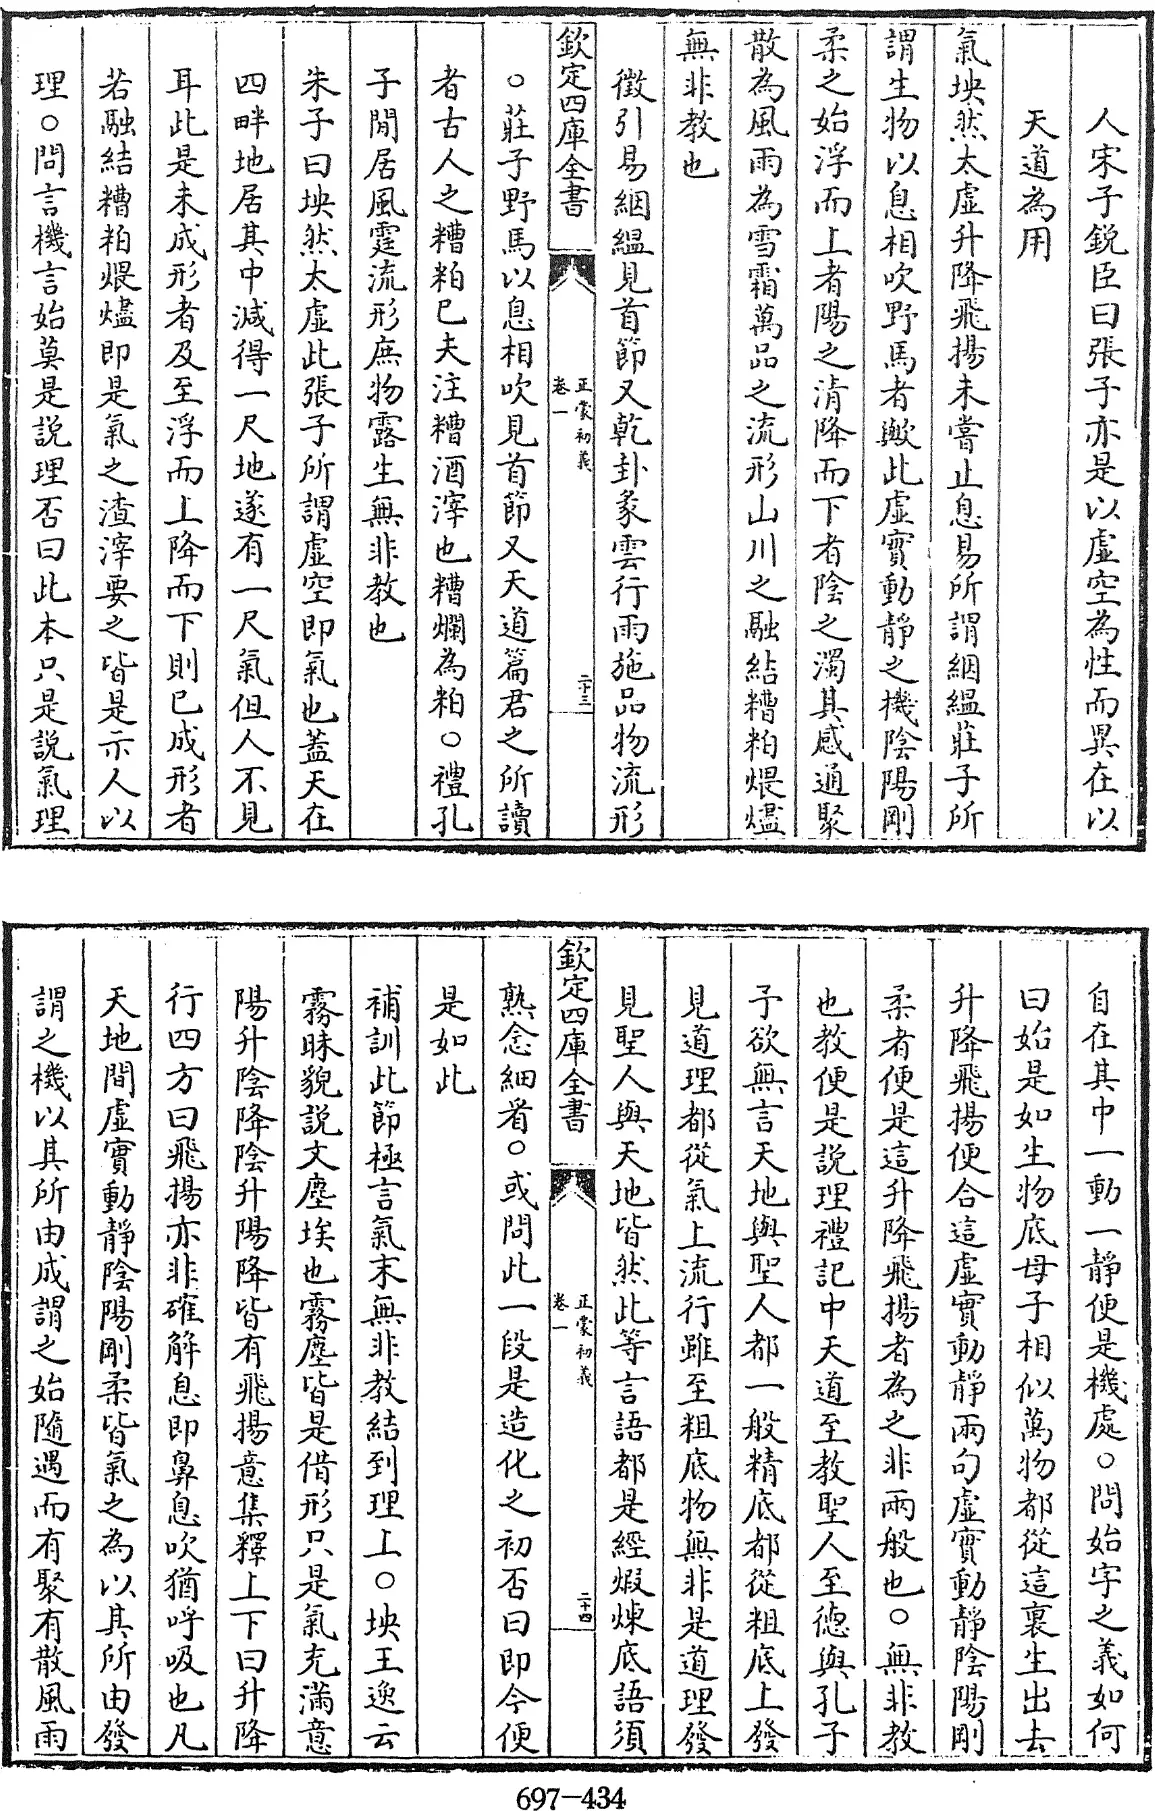 人宋子銳臣曰張子亦是以虛空為性而異在以
天道為用
氣坱然太虛升降飛揚未嘗止息易所謂絪縕莊子所
謂生物以息相吹野馬者歟此虛實動靜之機陰陽剛
柔之始浮而上者陽之清降而下者陰之濁其感通聚
散為風雨為雪霜萬品之流形山川之融結糟粕煨燼
無非教也
徵引易絪縕見首節又乾卦彖雲行雨施品物流形
欽定四庫全書
正蒙初義
卷一
二十三
○莊子野馬以息相吹見首節又天道篇君之所讀
者古人之糟粕已夫注糟酒滓也糟爛為粕○禮孔
子閒居風霆流形庶物露生無非教也
朱子曰坱然太虛此張子所謂虛空即氣也蓋天在
四畔地居其中減得一尺地遂有一尺氣但人不見
耳此是未成形者及至浮而上降而下則已成形者
若融結糟粕煨燼即是氣之渣滓要之皆是示人以
理○問言機言始莫是說理否曰此本只是說氣理
自在其中一動一靜便是機處○問始字之義如何
曰始是如生物底母子相似萬物都從這裏生出去
升降飛揚便合這虛實動靜兩句虛實動靜陰陽剛
柔者便是這升降飛揚者為之非兩般也○無非教
也教便是說理禮記中天道至教聖人至德與孔子
予欲無言天地與聖人都一般精底都從粗底上發
見道理都從氣上流行雖至粗底物無非是道理發
見聖人與天地皆然此等言語都是經煅煉底語須
欽定四庫全書
正蒙初義
卷一
二十四
熟念細看○或問此一段是造化之初否曰即今便
是如此
補訓此節極言氣末無非教結到理上○坱王逸云
霧昧貌說文塵埃也霧塵皆是借形只是氣充滿意
陽升陰降陰升陽降皆有飛揚意集釋上下曰升降
行四方曰飛揚亦非確解息即鼻息吹猶呼吸也凡
天地間虛實動靜陰陽剛柔皆氣之為以其所由發
謂之機以其所由成謂之始隨遇而有聚有散風雨
697-434